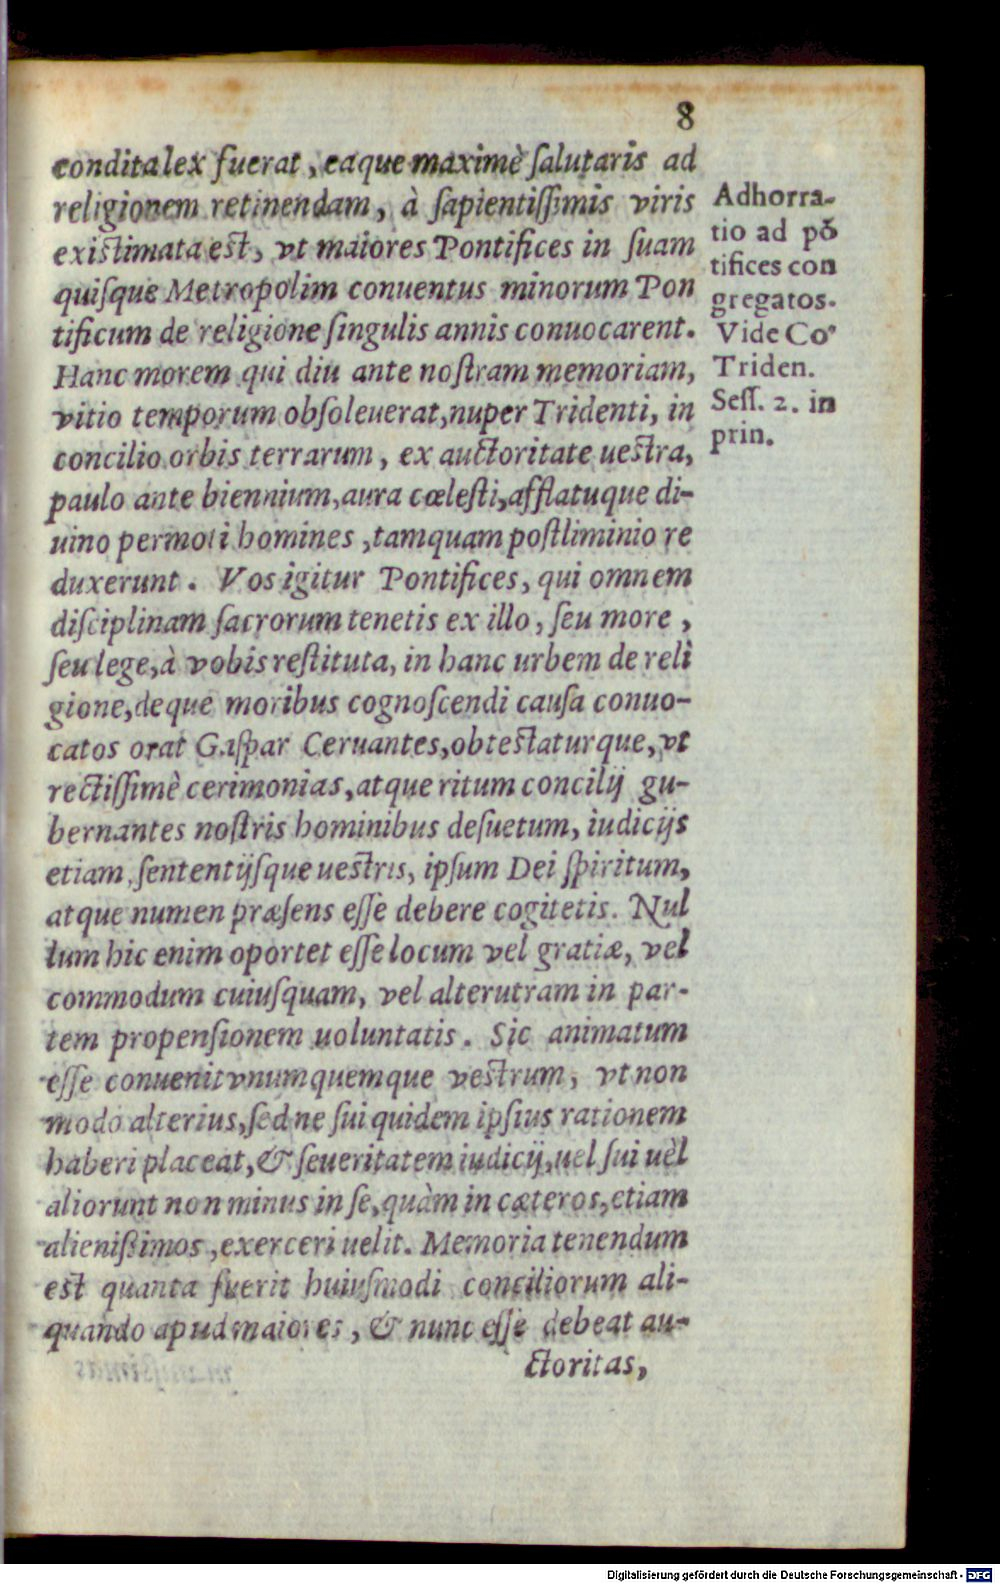 8
condita lex fuerat, eaque maximè ſalutaris ad
religionem retinendam, à ſapientiſſimis viris
exiſtimata eſt, vt maiores Pontifices in ſuam
quiſque Metropolim conuentus minorum Pon
tificum de religione ſingulis annis conuocarent.
Hanc morem qui diu ante noſtram memoriam,
vitio temporum obſoleuerat, nuper Tridenti, in
concilio orbis terrarum, ex auctoritate ueſtra,
paulo ante biennium, aura cœleſti, afflatuque di-
uino permoti homines, tamquam poſtliminio re
duxerunt. Vos igitur Pontifices, qui omnem
diſciplinam ſacrorum tenetis ex illo, ſeu more,
ſeu lege, à vobis reſtituta, in hanc urbem de reli
gione, deque moribus cognoſcendi cauſa conuo-
catos orat Gaſpar Ceruantes, obteſtaturque, vt
rectiſſimè cerimonias, atque ritum concilij gu-
bernantes noſtris hominibus deſuetum, iudicijs
etiam, ſententijſque ueſtris, ipſum Dei ſpiritum,
atque numen præſens eſſe debere cogitetis. Nul
lum hic enim oportet eſſe locum vel gratiæ, vel
commodum cuiuſquam, vel alterutram in par-
tem propenſionem uoluntatis. Sic animatum
eſſe conuenit vnumquemque veſtrum, vt non
modo alterius, ſed ne ſui quidem ipſius rationem
haberi placeat, & ſeueritatem iudicij, uel ſui uèl
aliorunt non minus in ſe, quàm in cæteros, etiam
alienißimos, exerceri uelit. Memoria tenendum
eſt quanta fuerit huiuſmodi conciliorum ali-
quando apud maiores, & nunc eſſe debeat au-
ctoritas,
Adhorra-
tio ad põ
tifices con
gregatos.
Vide Co
Triden.
Seſſ. 2. in
prin.
Digitalisierung gefördert durch die Deutsche Forschungsgemeinschaft - DFG